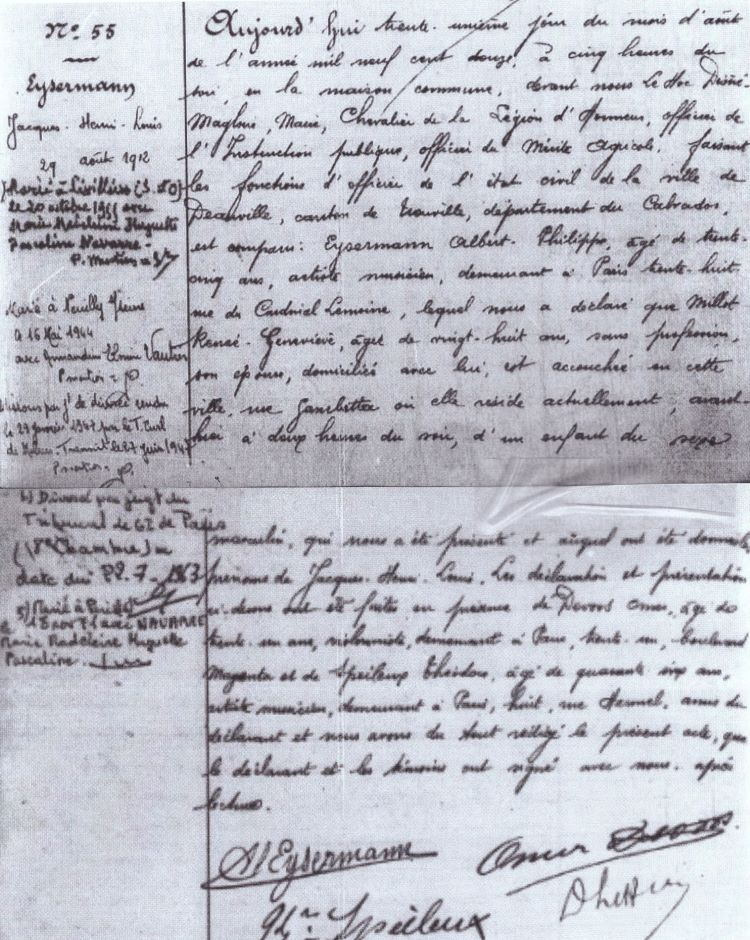 N° 55
Eysermann
Jacques-Henri-Louis
29 août 1912
Marié à
le 20 octobre
Marie Madeleine Huguette
Pascaline Navarre
Marié à Neuilly s/Seine
le 16 Mai 1944
avec
Aujourd'hui trente-unième jour du mois d'août
de l'année mil neuf cent douze, à cinq heures du
soir, en la maison commune, devant nous Le Hoc Désiré-
Magloire, Maire, Chevalier de la Légion d'Honneur, officier de
l'Instruction publique, officier du Mérite Agricole, faisant
les fonctions d'officier de l'état civil de la ville de
Deauville, canton de Trouville, département du Calvados,
est comparu: Eysermann Albert-Philippe, âgé de trente-
cinq ans, artiste musicien, demeurant à Paris trente-huit
rue du Cardinal Lemoine, lequel nous a déclaré que Millot
Renée-Geneviève, âgée de vingt-huit ans, sans profession,
son épouse, domiciliée avec lui, est accouchée en cette
ville, rue Gambetta où elle réside actuellement, avant-
hier à deux heures du soir, d'un enfant du sexe
Divorcé par jugt du
Tribunal de G I de Paris
(Chambre) en
date du
Marié à
avec NAVARRE
Marie Madeleine Huguette
Pascaline
masculin, qui nous a été présenté et auquel ont été donnés les
prénoms de Jacques-Henri-Louis. Les déclaration et présentation
ci-dessus ont été faites en présence de Devoos Omer, âgé de
trente-un ans, violoniste, demeurant à Paris, trente-un, boulevard
Magenta et de Speileux Théodore, âgé de quarante six ans,
artiste musicien, demeurant à Paris, huit, rue Hermel, amis du
déclarant et nous avons du tout rédigé le présent acte, que
le déclarant et les témoins ont signé avec nous après
lecture.
Al Eysermann
Omer Devoos
Speileux